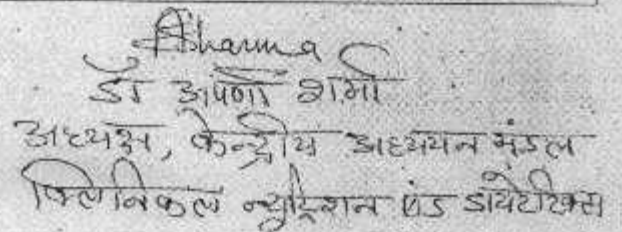 ASharma
डॉ अपर्णा शर्मा
अध्यक्ष, केन्द्रीय अध्ययन मंडल
क्लिनिकल न्यूट्रिशन एंड डायटेटिक्स